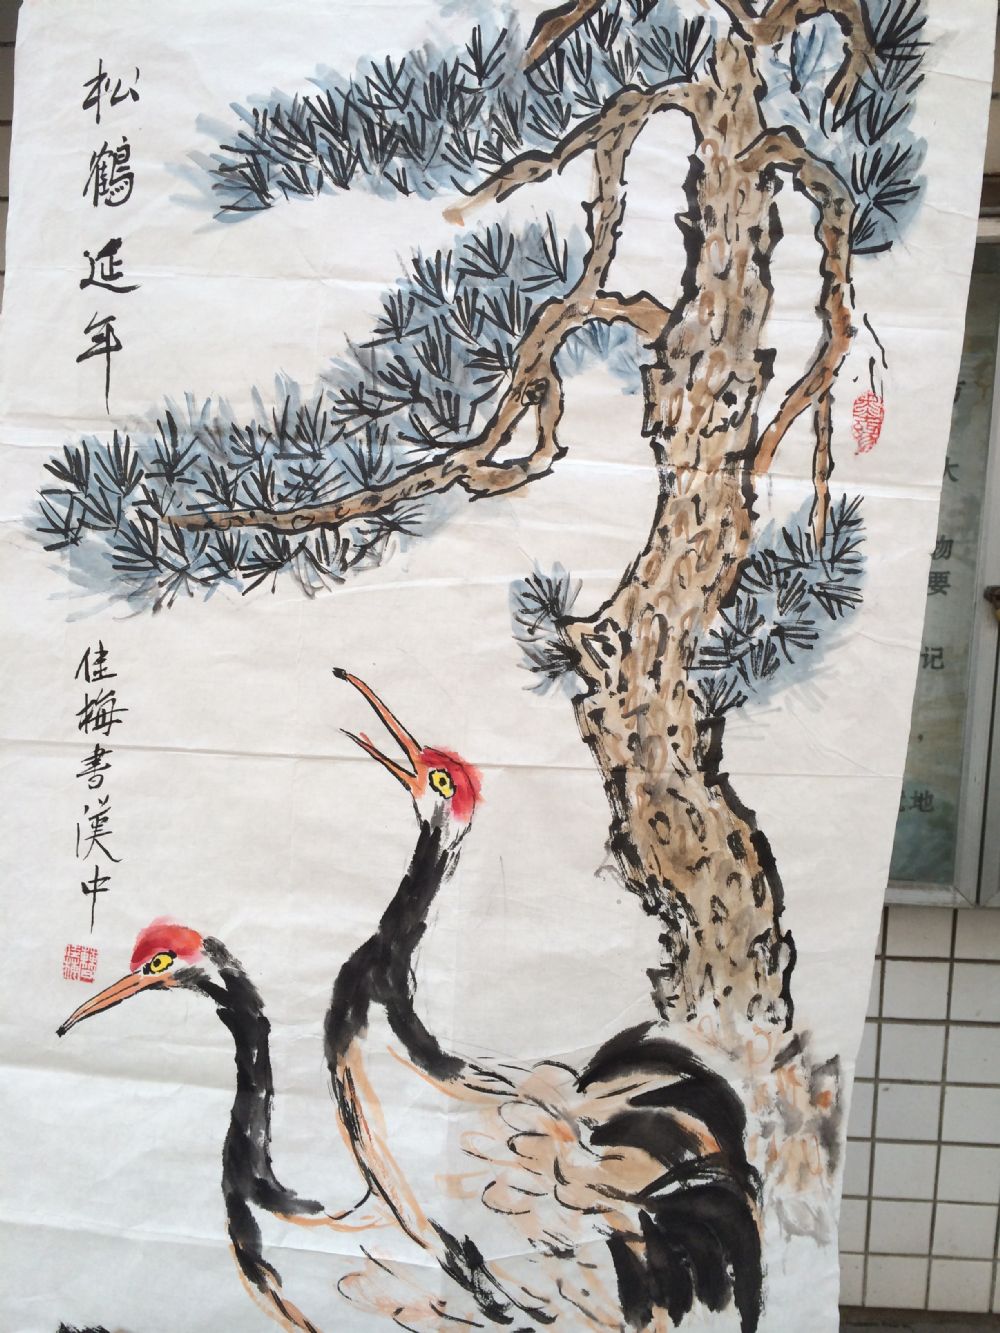 松鶴延年
佳梅書漢中
大
物
要
记
地